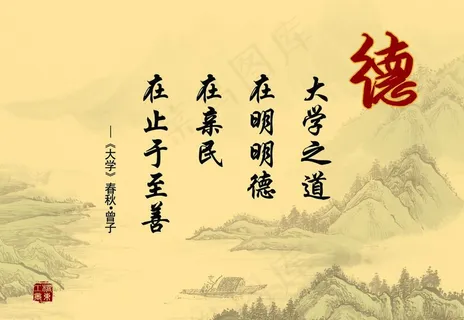 德
大学之道
在明明德
在亲民
在止于至善
—《大学》春秋·曾子